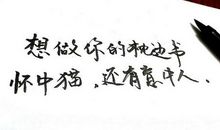 想做你的枕边书
怀中猫,还有意中人.